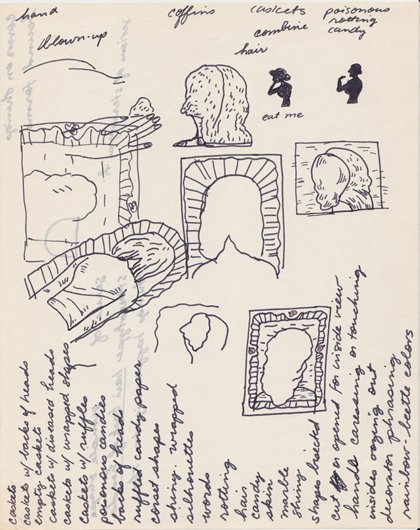 hand
blown-up
coffins
caskets
combine
hair
poisonous
rotting
candy
eat me
caskets
caskets w/ backs of heads
empty caskets
caskets w/ diseased heads
caskets w/ wrapped shapes
caskets w/ ruffles
poisonous candies
backs of heads
ruffled candy paper
corset shapes
shiny - wrapped
silhouettes
words
rotting
hair
candy
skin
marble
shiny
shapes bisected
cut or opened for inside view
handle caressing or touching
insides oozing out
decorator phrasing
rainbow- colors